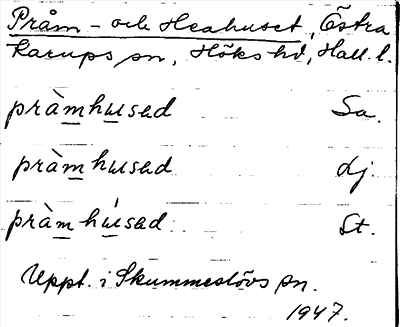 Pråm- och Heahuset, Östra
Karups sn, Höks hd, Hall. l.
pràmhusəd Sa.
pràmhusəd dj.
pràmhúsəd St.
Uppt. i Skummeslövs sn.
1947.